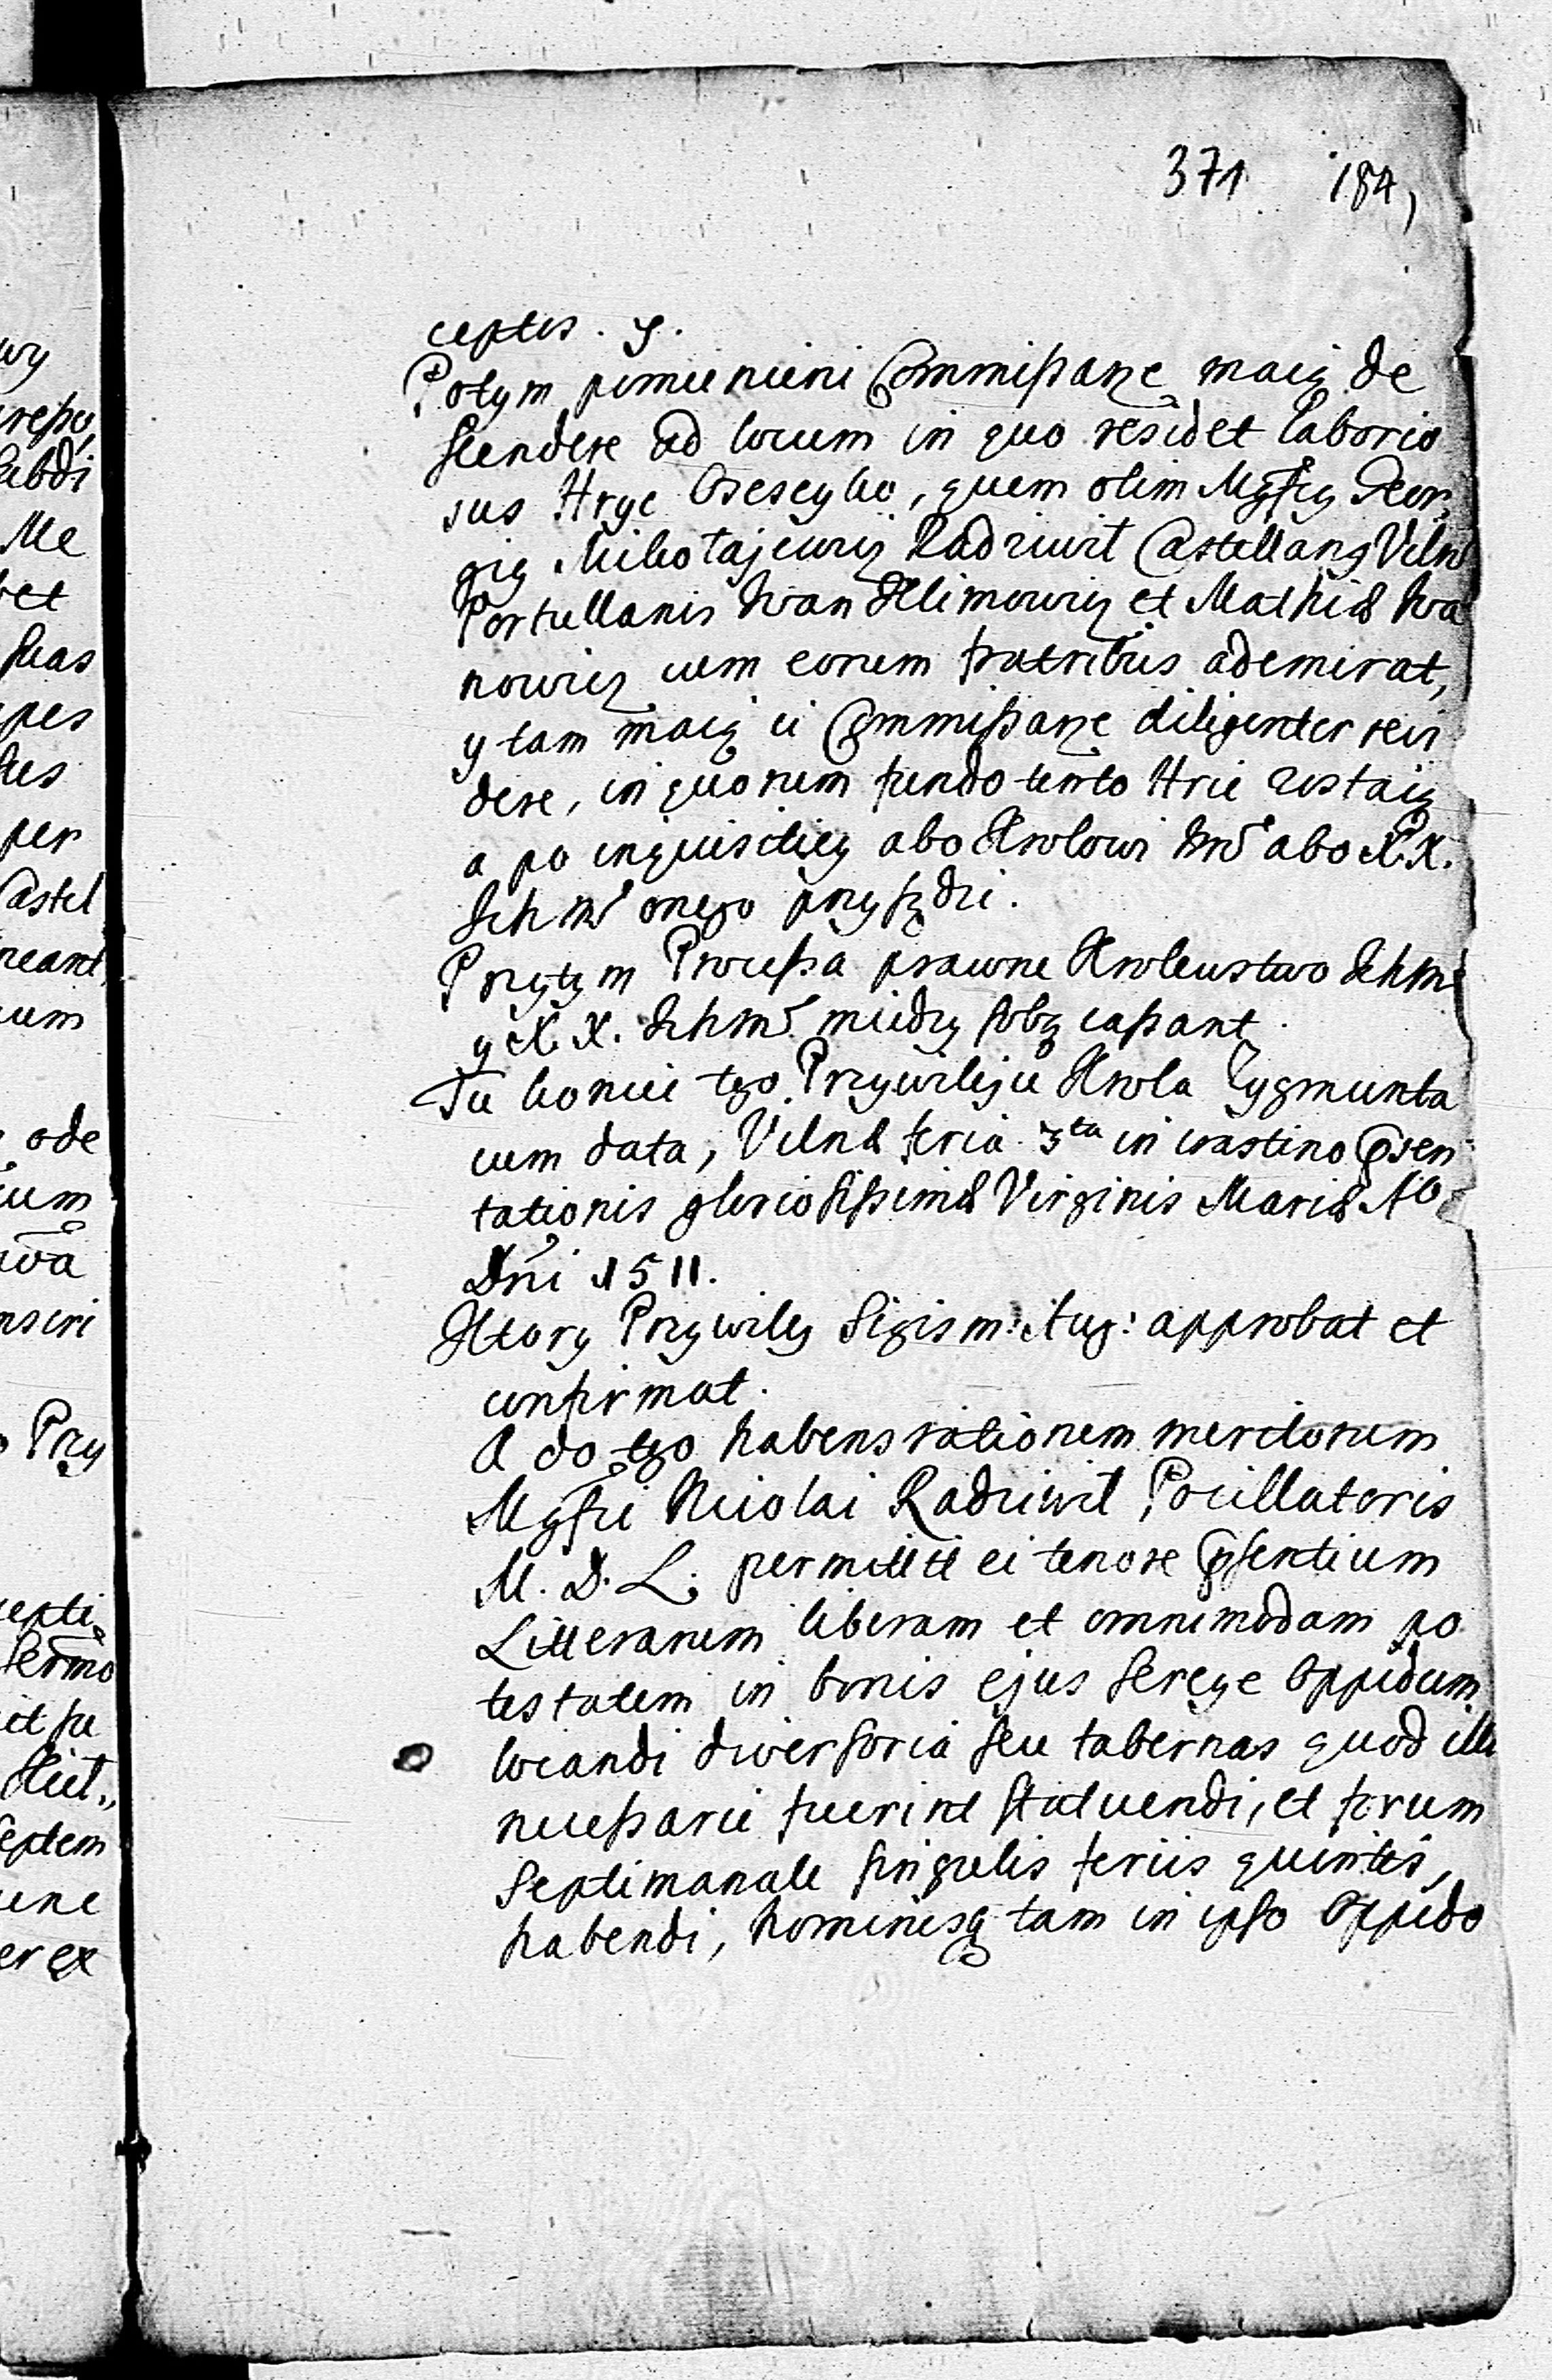 371 184,
ceptis. y.
Potym pomienieni Commißarze maią de
scendere ad locum in quo residet laborio
sus Hryc Oseseyko, quem olim Mgfcg Geor,
gig Mikołajewicz Radziwił Castellang Vilnæ
Portullanis Iwan Klimowicz et Mathiæ Iwa
nowicz cum eorum fratribus ademerat,
y tam maią ci Commißarze diligenter revi
dere, in quorum fundo tento Hric zostaię
a po inquisitiey abo Krolowi Jmć abo X. X.
Ichmć onego przysądzi.
Przytym Proceßa prawne Krolewstwo Ichmć
y X. X. Ichmć miedzy sobą caßant.
Tu koniec tego Przywileju Krola Zygmunta
cum data, Vilnæ feria 3ta in crastino Præsen
tationis gloriosißimæ Virginis Mariæ Ao
Dni 1511.
Ktory Przywiley Sigism: Aug: approbat et
confirmat.
A do tego habens rationem meritorum
Mgfci Nicolai Radziwił Pocillatoris
M. D. L. permittit ei tenore præsentium
Litterarum liberam et omnimodam po
testatem in bonis ejus Sereye Oppidum
locandi diversoria seu tabernas quod illi
necessarie fuerint statuendi, et forum
septimanale singulis feriis quintis,
habendi, hominesq tam in ipso Oppido